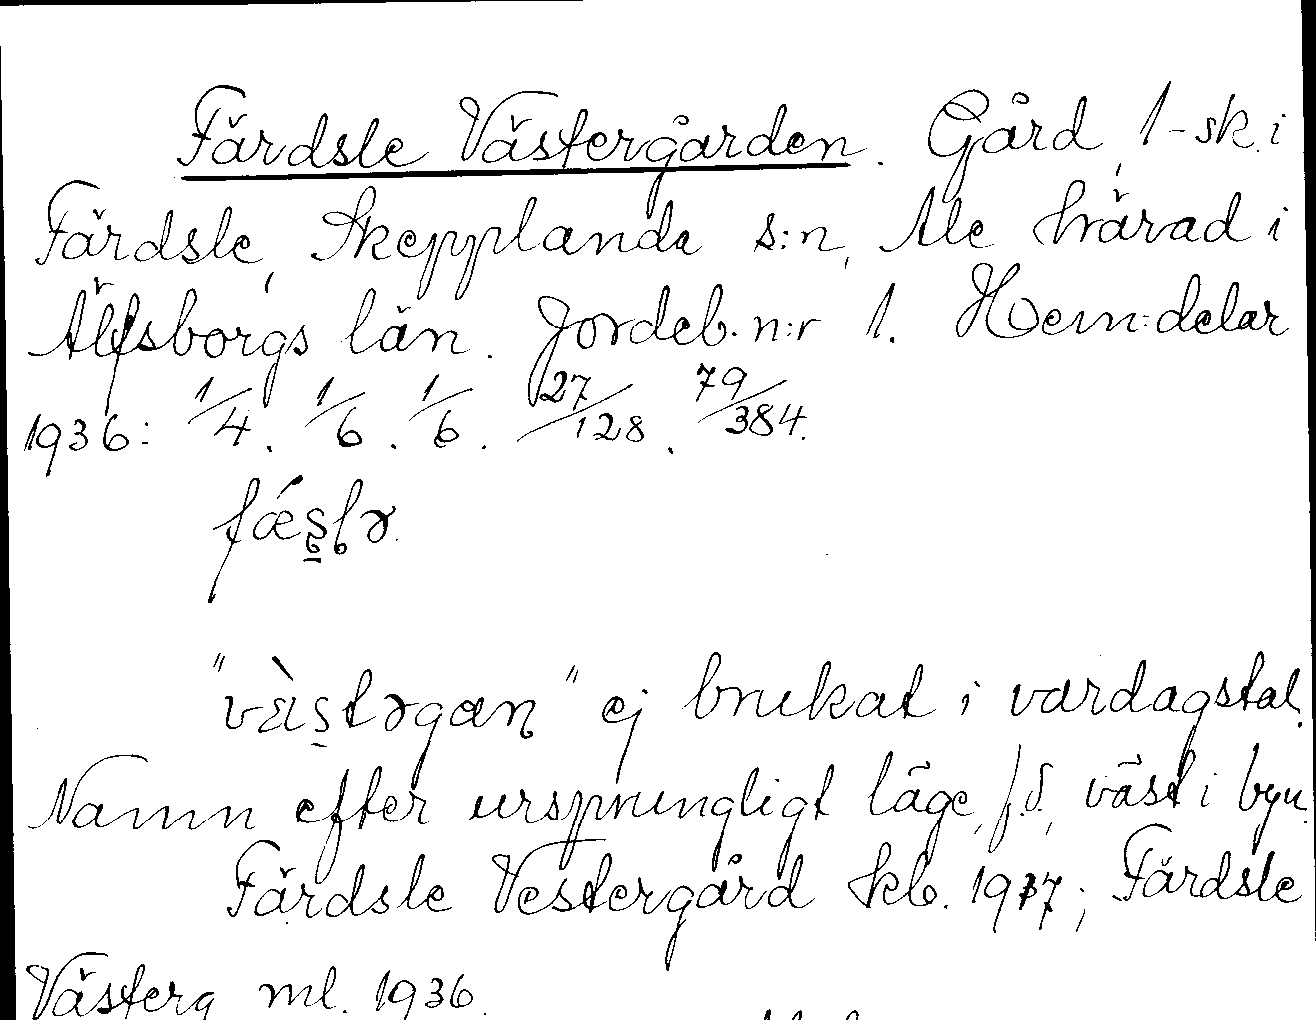 Färdsle Västergården. Gård, 1-sk. i
Färdsle, Skepplanda s:n, Ale härad i
Älfsborgs län. Jordeb. n:r 1. Hem:delar
1936: 1/4. 1/6. 1/6. 27/128. 79/384.
fǽslə.
"vàstəgan" ej brukat i vardagstal.
Namn efter ursprungligt läge, väst i byn.
Färdsle Vestergård Skb. 1917; Färdsle
Västerg ml. 1936.